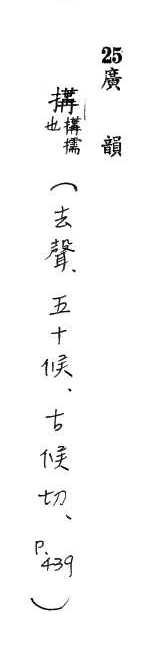 25 廣韻
搆 搆擩也(去聲、五十候、古候切、P.439)